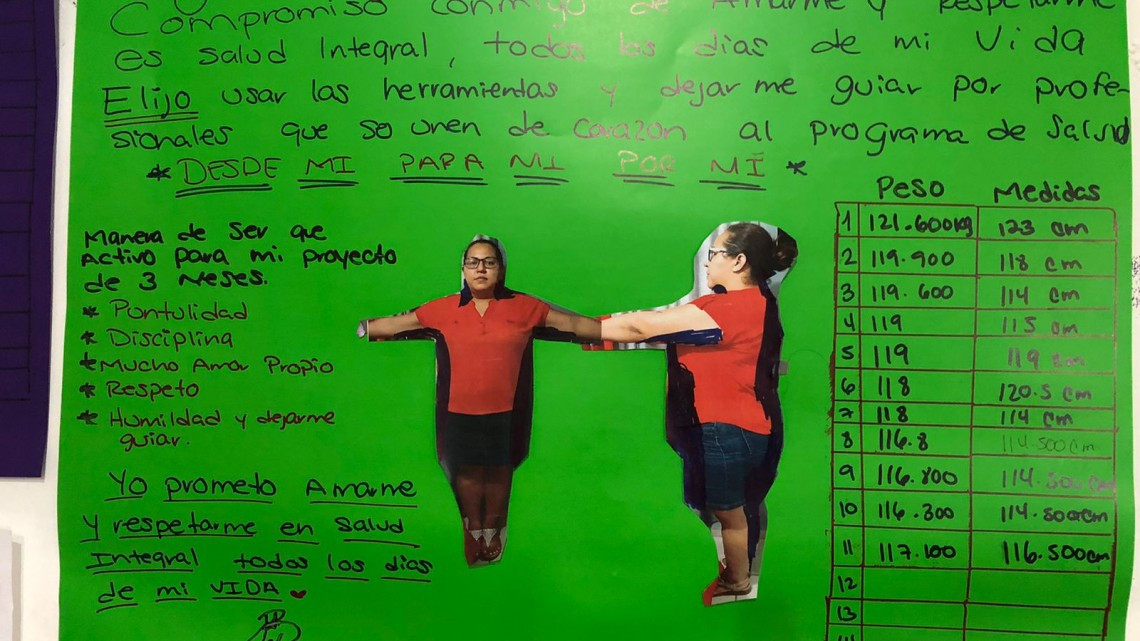 Compromiso conmigo de Amarme y Respetarme
es salud Integral, todos los dias de mi Vida
Elijo usar las herramientas y dejarme guiar por profe-
sionales que se unen de corazón al programa de Salud
* DESDE MI PAPA MI POR MÍ *
Manera de Ser que
Activo para mi proyecto
de 3 Meses.
* Pontulidad
* Disciplina
* Mucho Amor Propio
* Respeto
* Humildad y dejarme
guiar.
Yo prometo Amarme
y respetarme en salud
Integral todos los dias
de mi VIDA
Peso Medidas
1 121.600kg 123 cm
2 119.900 118 cm
3 119.600 114 cm
4 119 115 cm
5 119 119 cm
6 118 120.5 cm
7 118 114 cm
8 116.8 114.500cm
9 116.800 114.500 cm
10 116.300 114.500cm
11 117.100 116.500cm
12
13